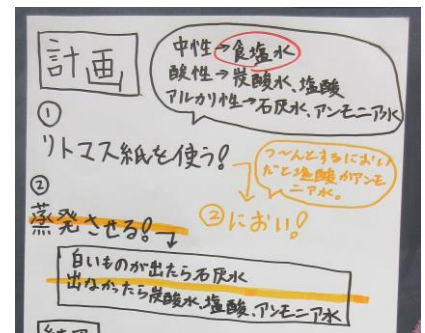 計画
中性→食塩水
酸性→炭酸水、塩酸
アルカリ性→石灰水、アンモニア水
①
リトマス紙を使う!
つ〜んとするにおい
だと塩酸かアンモ
ニア水。
②におい!
②
蒸発させる!→
白いものが出たら石灰水
出なかったら炭酸水、塩酸、アンモニア水